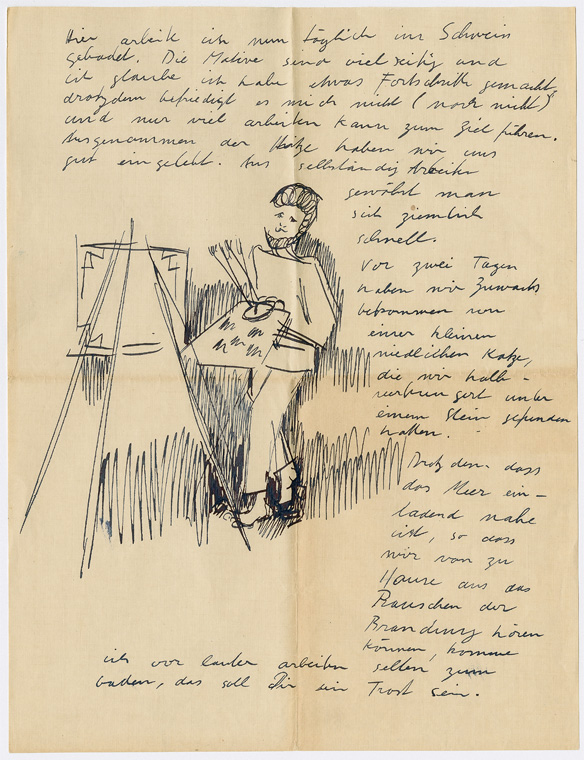 Hier arbeite ich nun täglich im Schweiss
gebadet. Die Motive sind vielseitig und
ich glaube ich habe etwas Fortschritte gemacht,
drotzdem befriedigt es mich nicht (noch nicht)
und nur viel arbeiten kann zum Ziel führen.
Ausgenommen der Hitze haben wir uns
gut eingelebt. Ans selbständig Arbeiten
gewöhnt man
sich ziemlich
schnell.
Vor zwei Tagen
haben wir Zuwachs
bekommen von
einer kleinen
niedlichen Katze,
die wir halb-
verhungert unter
einem Stein gefunden
hatten.
Drotzdem dass
das Meer ein-
ladend nahe
ist, so dass
wir von zu
Hause aus das
Rauschen der
Brandung hören
können, komme
ich vor lauter arbeiten selten zum
baden, das soll Dir ein Trost sein.